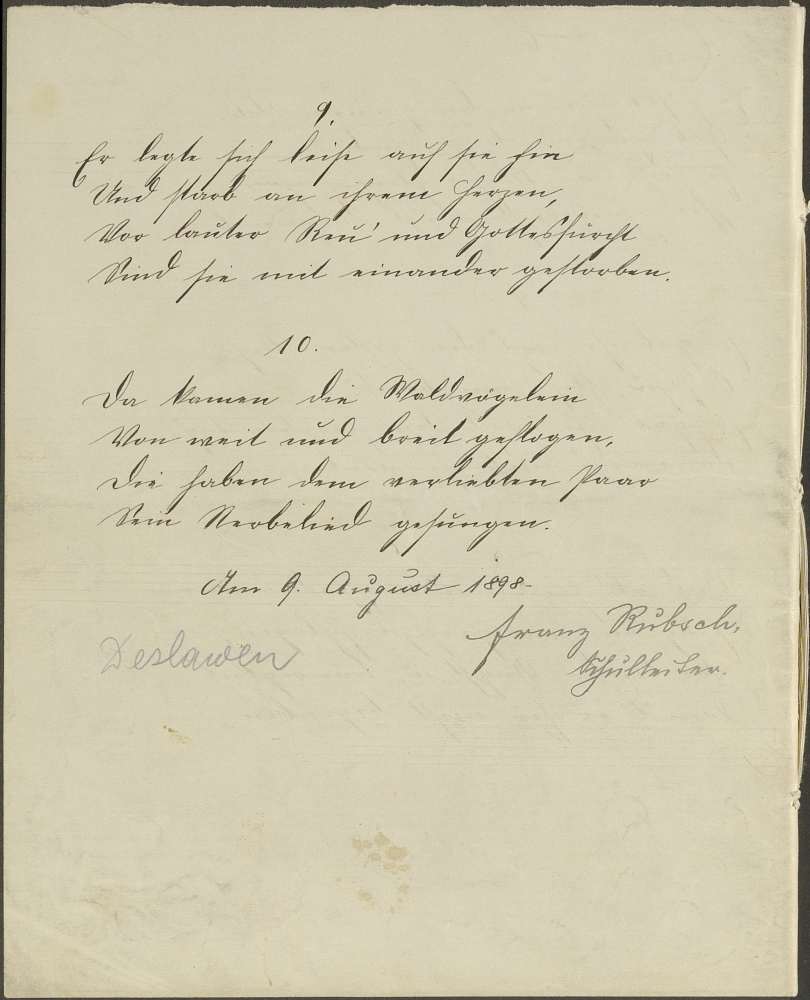 9.
Er legte sich leise auf sie hin
Und starb an ihrem Herzen,
Vor lauter Reu' und Gottesfurcht
Sind sie mit einander gestorben.
10.
Da kamen die Waldvögelein
Von weit und breit geflogen,
Die haben dem verliebten Paar
Sein Sterbelied gesungen.
Am 9. August 1898.
Franz Rubsch,
Schulleiter.
Deslawen